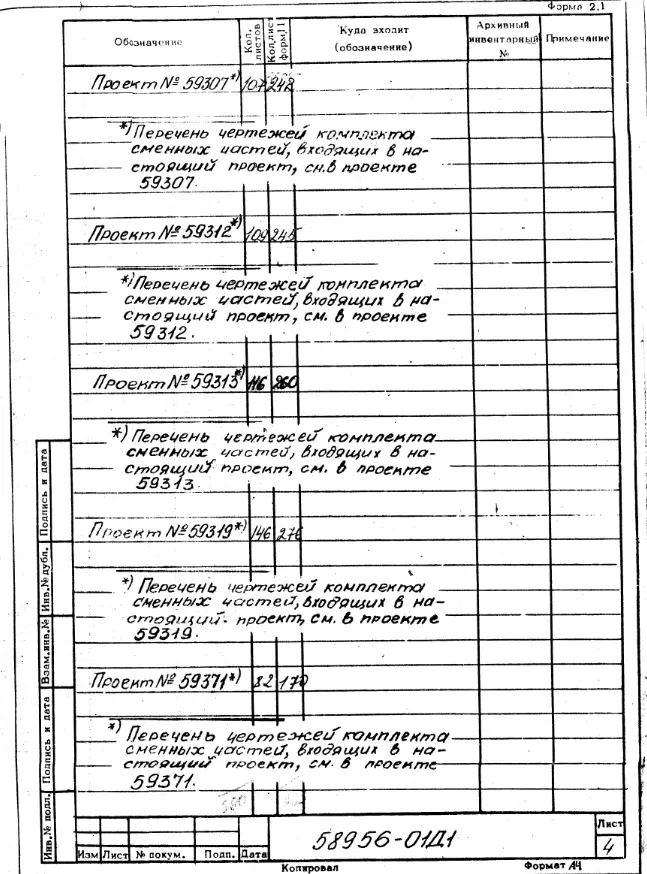 Форма 2.1
Обозначение
Кол. листов
Кол. лист. форм. 11
Куда входит
(обозначение)
Архивный
инвентарный
№
Примечание
Проект № 59307*) 107 242
*) Перечень чертежей комплекта
сменных частей, входящих в на-
стоящий проект, см. в проекте
59307.
Проект № 59312*) 109 245
*) Перечень чертежей комплекта
сменных частей, входящих в на-
стоящий проект, см. в проекте
59312.
Проект № 59313*) 116 260
*) Перечень чертежей комплекта
сменных частей, входящих в на-
стоящий проект, см. в проекте
59313.
Проект № 59319*) 146 276
*) Перечень чертежей комплекта
сменных частей, входящих в на-
стоящий проект, см. в проекте
59319.
Проект № 59371*) 82 170
*) Перечень чертежей комплекта
сменных частей, входящих в на-
стоящий проект, см. в проекте
59371.
Подпись и дата
Инв.№ дубл.
Взам.инв.№
Подпись и дата
Инв.№ подл.
Изм Лист № покум. Подп. Дата
58956-01Д1
Лист
4
Копировал
Формат А4